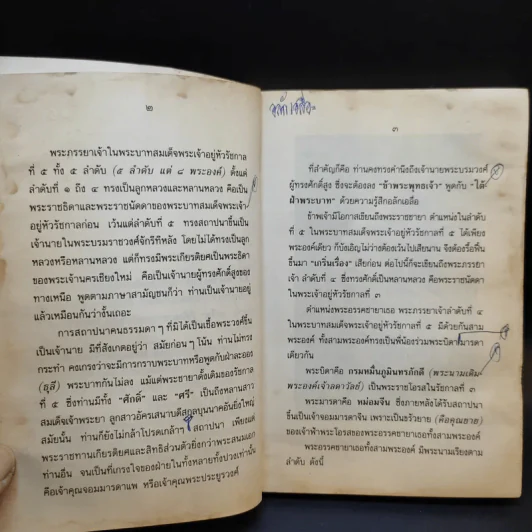 ๒
พระภรรยาเจ้าในพระบาทสมเด็จพระเจ้าอยู่หัวรัชกาล
ที่ ๕ ทั้ง ๕ ลำดับ (๕ ลำดับ แต่ ๘ พระองค์) ตั้งแต่
ลำดับที่ ๑ ถึง ๔ ทรงเป็นลูกหลวงและหลานหลวง คือเป็น
พระราชธิดาและพระราชนัดดาของพระบาทสมเด็จพระเจ้า
อยู่หัวรัชกาลก่อน เว้นแต่ลำดับที่ ๕ ทรงสถาปนาขึ้นเป็น
เจ้านายในพระบรมราชวงศ์จักรีทีหลัง โดยไม่ได้ทรงเป็นลูก
หลวงหรือหลานหลวง แต่ก็ทรงมีพระเกียรติยศเป็นพระธิดา
ของพระเจ้านครเชียงใหม่ คือเป็นเจ้านายผู้ทรงศักดิ์สูงของ
ทางเหนือ พูดตามภาษาสามัญชนก็ว่า ท่านเป็นเจ้านายอยู่
แล้วเหมือนกันว่างั้นเถอะ
การสถาปนาคนธรรมดาๆ ที่มิได้เป็นเชื้อพระวงศ์ขึ้น
เป็นเจ้านาย มีที่สังเกตอยู่ว่า สมัยก่อนๆ โน้น ท่านไม่ทรง
กระทำ คงเกรงว่าจะมีการกราบพระบาทหรือพูดกับฝ่าละออง
(ธุลี) พระบาทกันไม่ลง แม้แต่พระชายาดั้งเดิมของรัชกาล
ที่ ๕ ซึ่งท่านมีทั้ง "ศักดิ์" และ "ศรี" เป็นถึงหลานสาว
สมเด็จเจ้าพระยา ลูกสาวอัครเสนาบดีสกุลบุนนาคอันยิ่งใหญ่
สมัยนั้น ท่านก็ยังไม่กล้าโปรดเกล้าๆ สถาปนา เพียงแต่
พระราชทานเกียรติยศและสิทธิส่วนตัวยิ่งกว่าพระสนมเอก
ท่านอื่น จนเป็นที่เกรงใจของฝ่ายในทั้งหลายทั้งปวงเท่านั้น
คือเจ้าคุณจอมมารดาแพ หรือเจ้าคุณพระประยูรวงศ์
๓
ที่สำคัญก็คือ ท่านคงทรงคำนึงถึงเจ้านายพระบรมวงศ์
ผู้ทรงศักดิ์สูง ซึ่งจะต้องลง "ข้าพระพุทธเจ้า" พูดกับ "ใต้
ฝ่าพระบาท" ด้วยความรู้สึกอลักเอลื่อ
ข้าพเจ้ามีโอกาสเขียนถึงพระราชชายา ตำแหน่งในลำดับ
ที่ ๕ ในพระบาทสมเด็จพระเจ้าอยู่หัวรัชกาลที่ ๕ ได้เพียง
พระองค์เดียว ก็บังเอิญไม่ว่างต้องเว้นไปเสียนาน จึงต้องรื้อฟื้น
ขึ้นมา "เกริ่นเรื่อง" เสียก่อน ต่อไปนี้ก็จะเขียนถึงพระภรรยา
เจ้า ลำดับที่ ๔ ซึ่งทรงศักดิ์เป็นหลานหลวง คือพระราชนัดดา
ในพระบาทสมเด็จพระเจ้าอยู่หัวรัชกาลที่ ๓
ตำแหน่งพระอรรคชายาเธอ พระภรรยาเจ้าลำดับที่ ๔
ในพระบาทสมเด็จพระเจ้าอยู่หัวรัชกาลที่ ๕ มีด้วยกันสาม
พระองค์ ทั้งสามพระองค์ทรงเป็นพี่น้องร่วมพระบิดามารดา
เดียวกัน
พระบิดาคือ กรมหมื่นภูมินทรภักดี (พระนามเดิม
พระองค์เจ้าลดาวัลย์) เป็นพระราชโอรสในรัชกาลที่ ๓
พระมารดาคือ หม่อมจีน ซึ่งภายหลังได้รับสถาปนา
ขึ้นเป็นเจ้าจอมมารดาจีน เพราะเป็นขรัวยาย (คือคุณยาย)
ของเจ้าฟ้าพระโอรสของพระอรรคชายาเธอทั้งสามพระองค์
พระอรรคชายาเธอทั้งสามพระองค์ มีพระนามเรียงตาม
ลำดับ ดังนี้